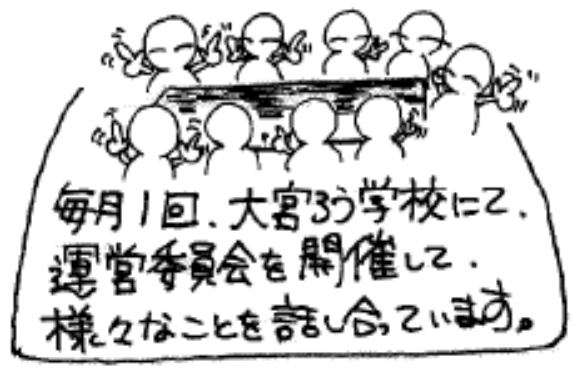 毎月1回、大宮ろう学校にて、
運営委員会を開催して、
様々なことを話し合っています。